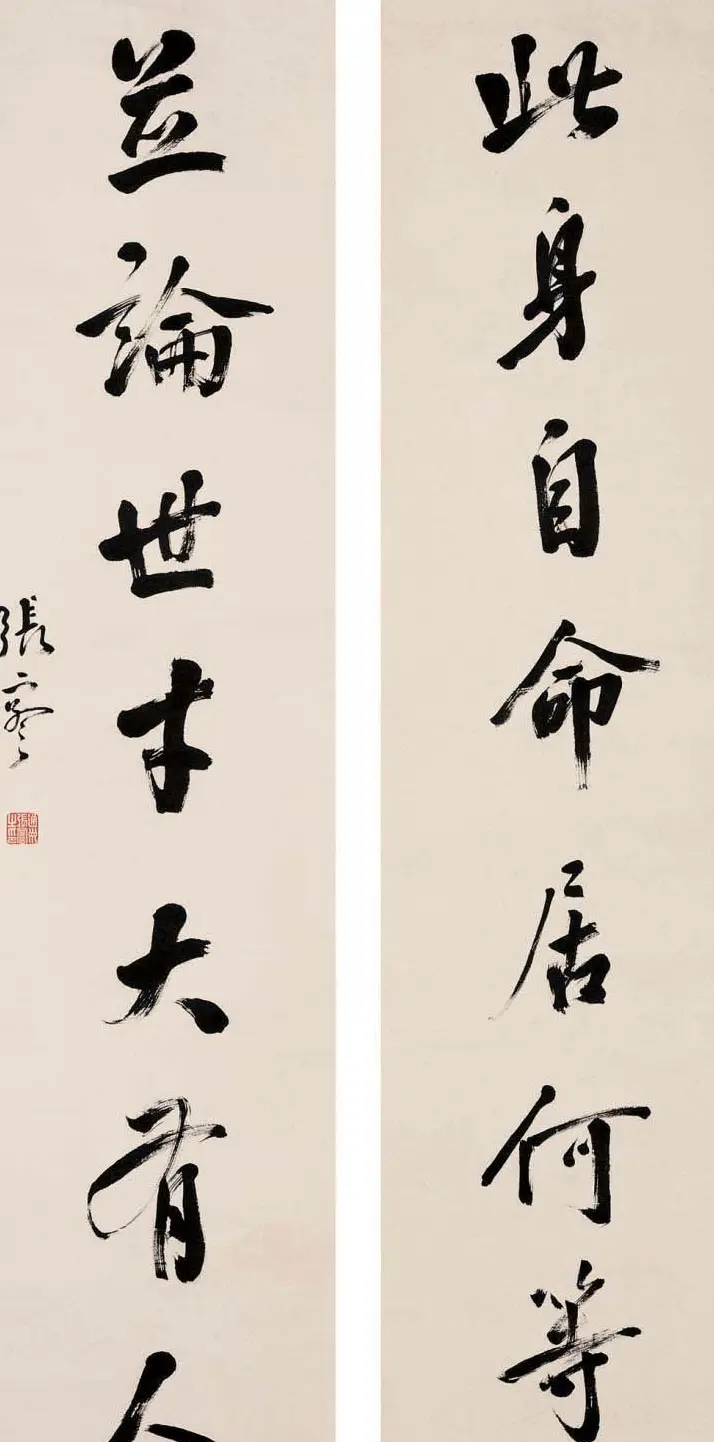 此身自命居何等
並論世才大有人
張謇